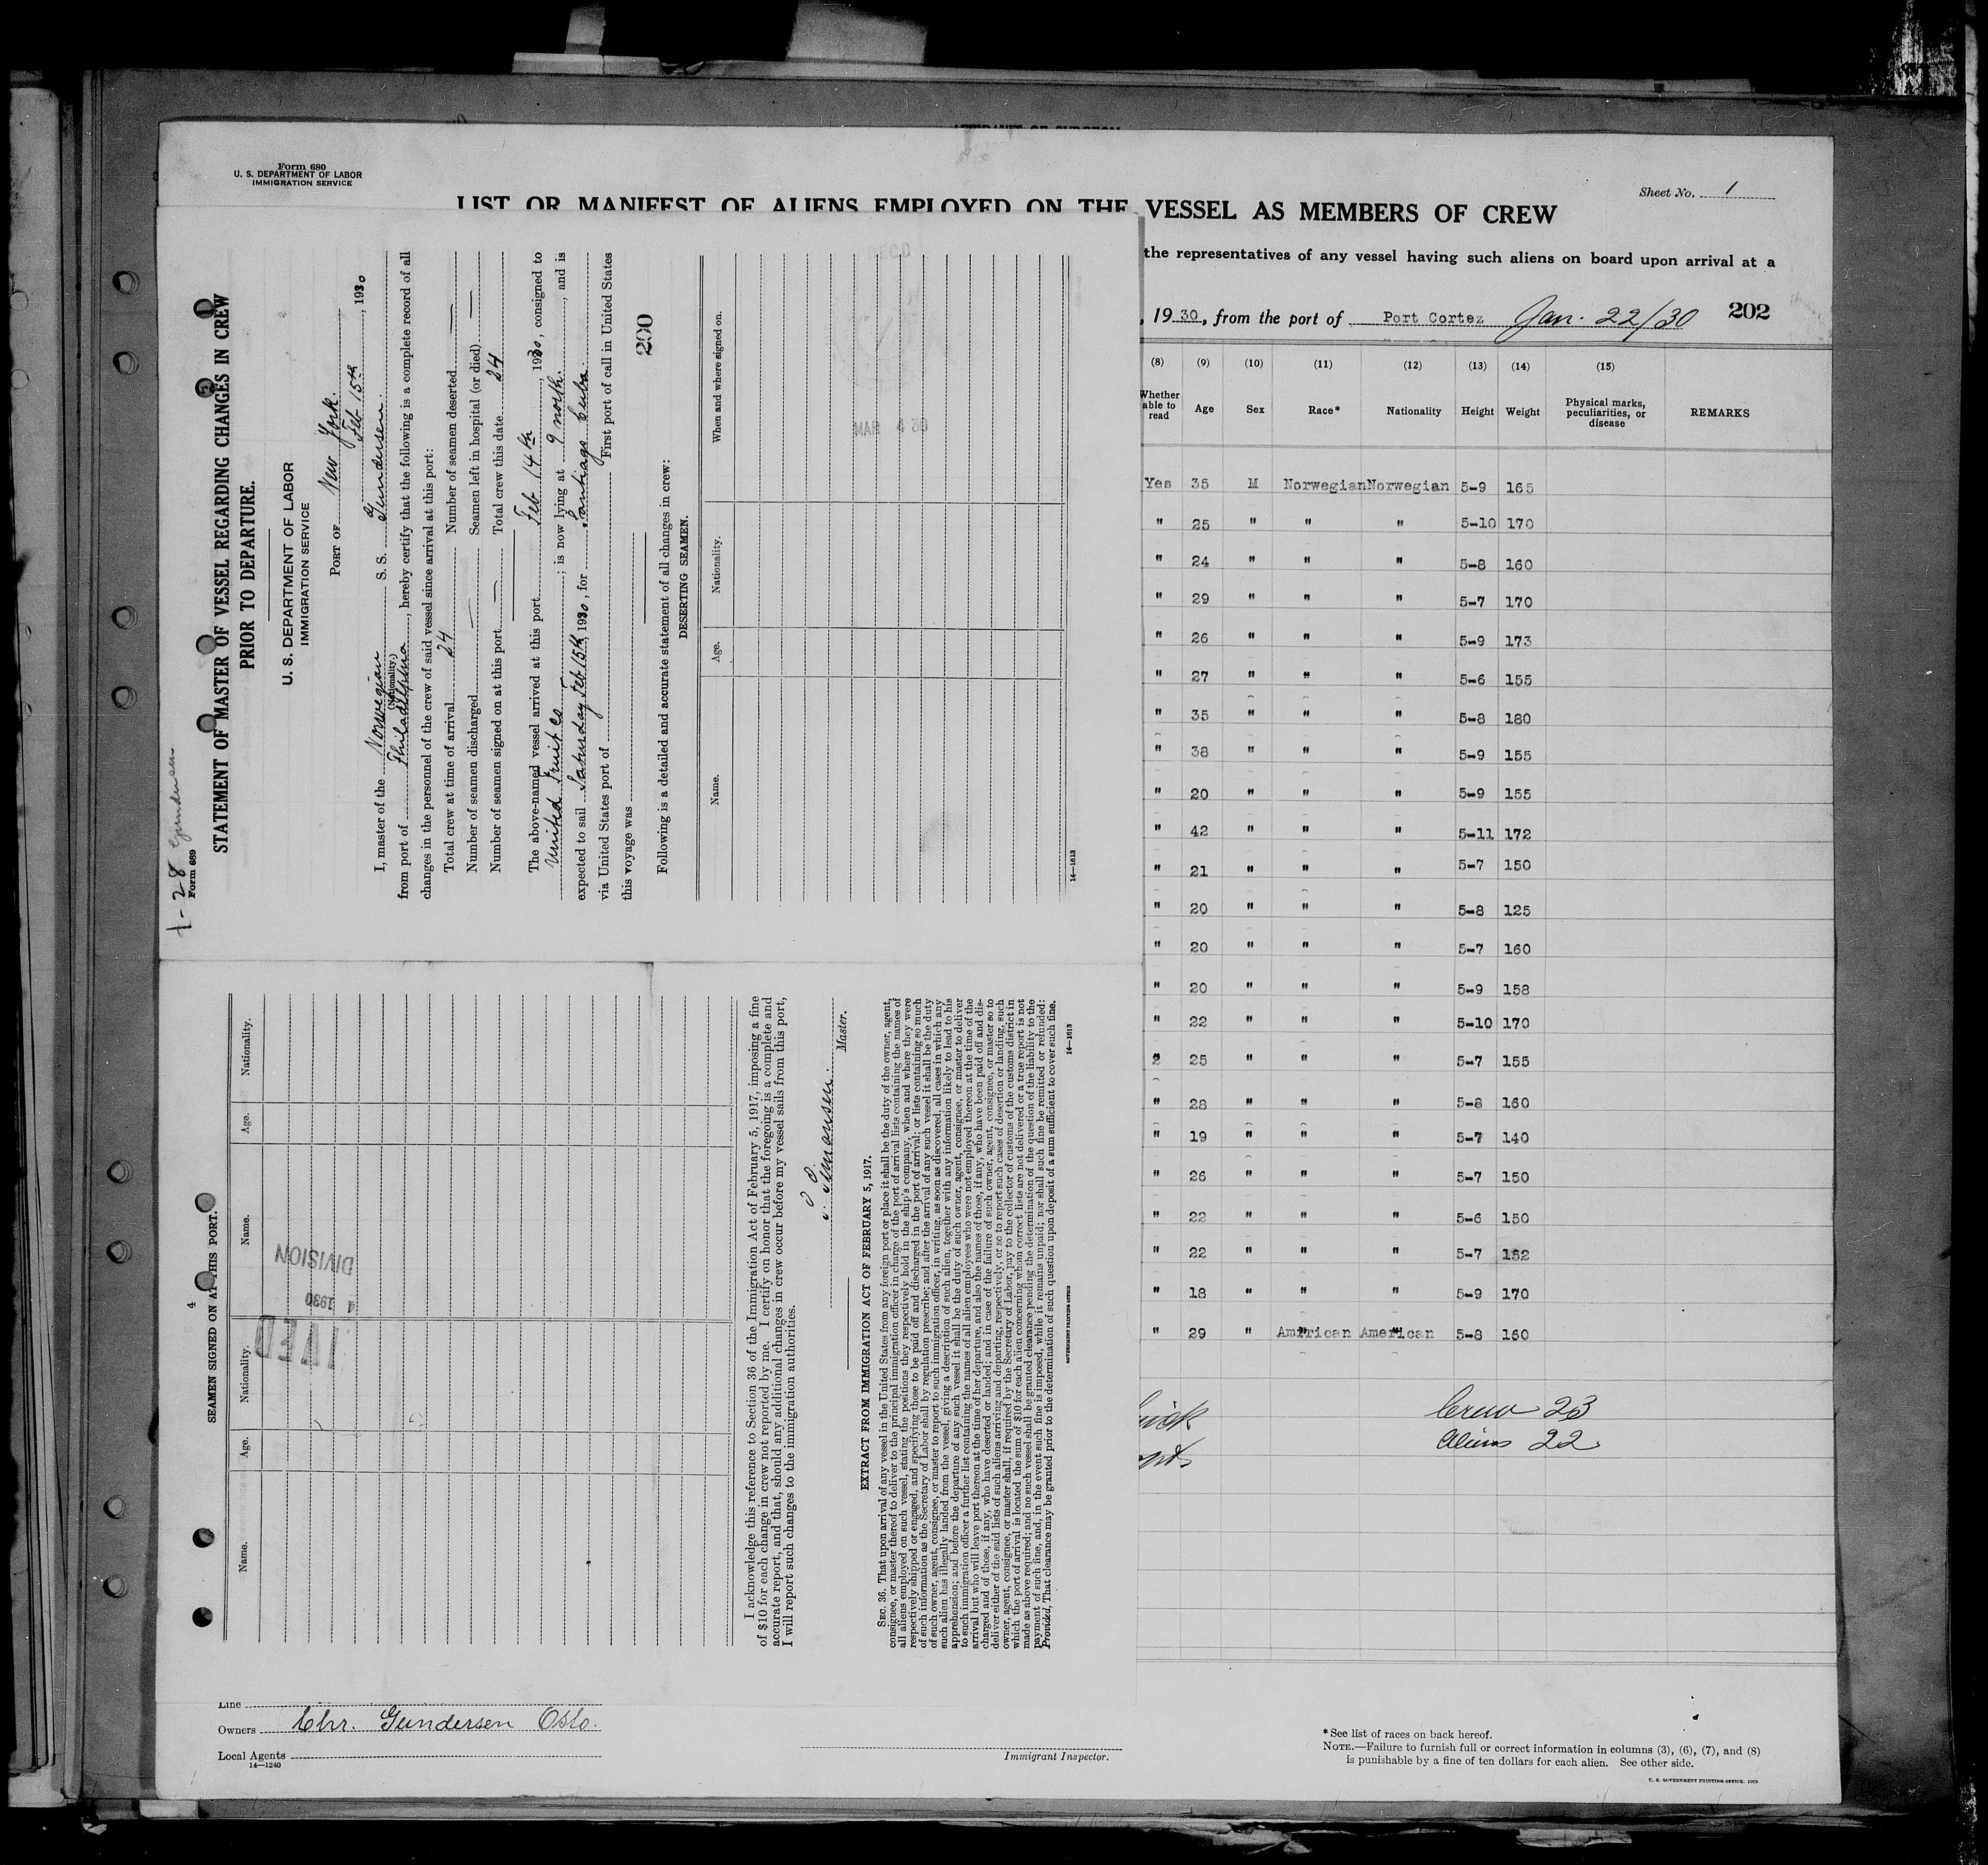 AFFIDAVIT OF SURGEON
Form 680
U. S. DEPARTMENT OF LABOR
IMMIGRATION SERVICE
Sheet No. 1
LIST OR MANIFEST OF ALIENS EMPLOYED ON THE VESSEL AS MEMBERS OF CREW
the representatives of any vessel having such aliens on board upon arrival at a
, 1930, from the port of Port Cortez Jan. 22/30 202
(8) (9) (10) (11) (12) (13) (14) (15)
Whether able to read Age Sex Race* Nationality Height Weight Physical marks, peculiarities, or disease REMARKS
Yes 35 M Norwegian Norwegian 5-9 165
" 25 " " " 5-10 170
" 24 " " " 5-8 160
" 29 " " " 5-7 170
" 26 " " " 5-9 173
" 27 " " " 5-6 155
" 35 " " " 5-8 180
" 38 " " " 5-9 155
" 20 " " " 5-9 155
" 42 " " " 5-11 172
" 21 " " " 5-7 150
" 20 " " " 5-8 125
" 20 " " " 5-7 160
" 20 " " " 5-9 158
" 22 " " " 5-10 170
" 25 " " " 5-7 155
" 28 " " " 5-8 160
" 19 " " " 5-7 140
" 26 " " " 5-7 150
" 22 " " " 5-6 150
" 22 " " " 5-7 152
" 18 " " " 5-9 170
" 29 " American American 5-8 160
Crew 23
Aliens 22
Line
Owners Chr. Gundersen Oslo.
Local Agents
14—1240
Immigrant Inspector.
*See list of races on back hereof.
NOTE.—Failure to furnish full or correct information in columns (3), (6), (7), and (8)
is punishable by a fine of ten dollars for each alien. See other side.
U. S. GOVERNMENT PRINTING OFFICE: 1929
1-28 Gundersen
Form 689
STATEMENT OF MASTER OF VESSEL REGARDING CHANGES IN CREW
PRIOR TO DEPARTURE.
U. S. DEPARTMENT OF LABOR
IMMIGRATION SERVICE
PORT OF New York.
Feb 15th, 1930
I, master of the Norwegian S. S. Gundersen.
(Nationality.)
from port of Philadelphia, hereby certify that the following is a complete record of all
changes in the personnel of the crew of said vessel since arrival at this port:
Total crew at time of arrival 24 Number of seamen deserted —
Number of seamen discharged — Seamen left in hospital (or died) —
Number of seamen signed on at this port — Total crew this date 24
The above-named vessel arrived at this port Feb 14th, 1930, consigned to
United Fruit Co; is now lying at 9 north., and is
expected to sail Saturday Feb 15th, 1930, for Santiago Cuba.
via United States port of First port of call in United States
this voyage was 200
Following is a detailed and accurate statement of all changes in crew:
DESERTING SEAMEN.
Name. Age. Nationality. When and where signed on.
REC'D
MAR 4 30
14—1613
4
SEAMEN SIGNED ON AT THIS PORT.
Name. Age. Nationality. Name. Age. Nationality.
DIVISION
4 1930
IVED
I acknowledge this reference to Section 36 of the Immigration Act of February 5, 1917, imposing a fine
of $10 for each change in crew not reported by me. I certify on honor that the foregoing is a complete and
accurate report, and that, should any additional changes in crew occur before my vessel sails from this port,
I will report such changes to the immigration authorities.
Master.
EXTRACT FROM IMMIGRATION ACT OF FEBRUARY 5, 1917.
SEC. 36. That upon arrival of any vessel in the United States from any foreign port or place it shall be the duty of the owner, agent,
consignee, or master thereof to deliver to the principal immigration officer in charge of the port of arrival lists containing the names of
all aliens employed on such vessel, stating the positions they respectively hold in the ship's company, when and where they were
respectively shipped or engaged, and specifying those to be paid off and discharged in the port of arrival; or lists containing so much
of such information as the Secretary of Labor shall by regulation prescribe; and after the arrival of any such vessel it shall be the duty
of such owner, agent, consignee, or master to report to such immigration officer, in writing, as soon as discovered, all cases in which any
such alien has illegally landed from the vessel, giving a description of such alien, together with any information likely to lead to his
apprehension; and before the departure of any such vessel it shall be the duty of such owner, agent, consignee, or master to deliver
to such immigration officer a further list containing the names of all alien employees who were not employed thereon at the time of the
arrival but who will leave port thereon at the time of her departure, and also the names of those, if any, who have been paid off and dis-
charged and of those, if any, who have deserted or landed; and in case of the failure of such owner, agent, consignee, or master so to
deliver either of the said lists of such aliens arriving and departing, respectively, or so to report such cases of desertion or landing, such
owner, agent, consignee, or master shall, if required by the Secretary of Labor, pay to the collector of customs of the customs district in
which the port of arrival is located the sum of $10 for each alien concerning whom correct lists are not delivered or a true report is not
made as above required; and no such vessel shall be granted clearance pending the determination of the question of the liability to the
payment of such fine, and, in the event such fine is imposed, while it remains unpaid; nor shall such fine be remitted or refunded:
Provided, That clearance may be granted prior to the determination of such question upon deposit of a sum sufficient to cover such fine.
GOVERNMENT PRINTING OFFICE
14—1613